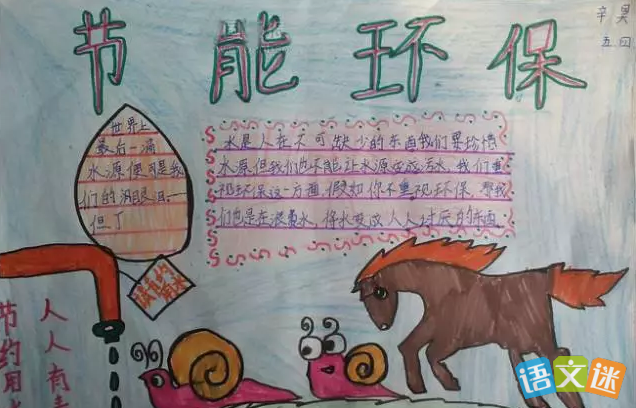 节能环保
辛昊
五四
世界上
最后一滴
水源便可是我
们的泪眼泪
但丁
水是人在不可缺少的东西我们要珍惜
水源但我们也不能让水源变成污水,我们重
视环保这一方面,假如你不重视环保,那我
们也是在浪费水,
请节约
用水
节约用水
人人有责
语文迷